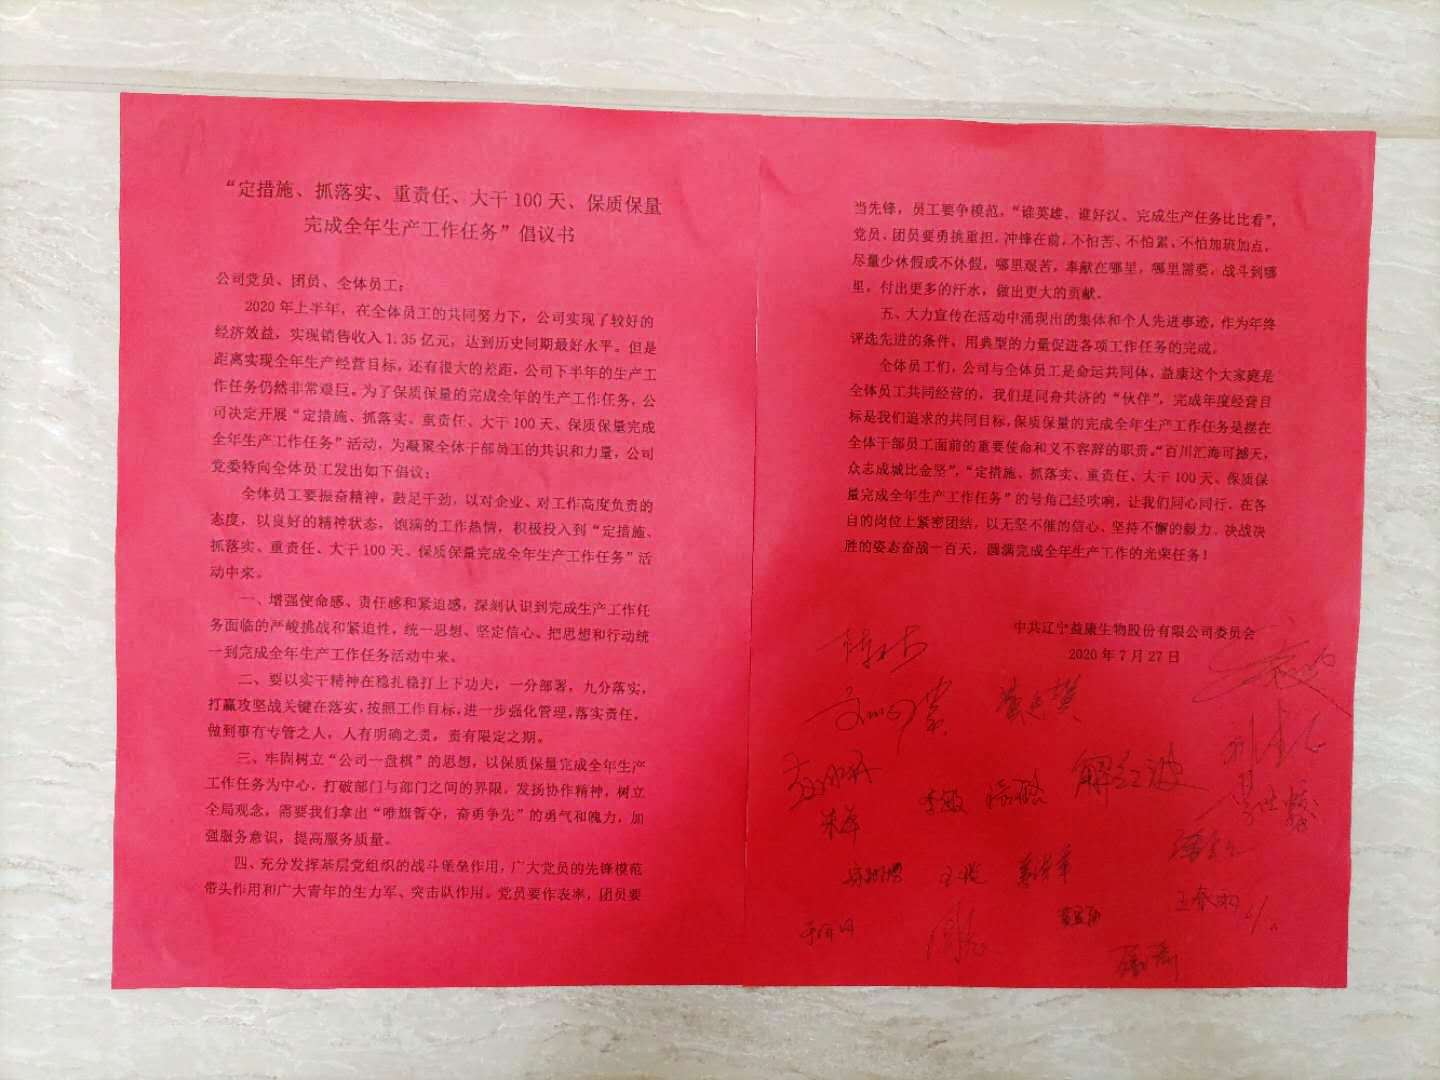 “定措施、抓落实、重责任、大干 100 天、保质保量
完成全年生产工作任务”倡议书
公司党员、团员、全体员工：
2020 年上半年，在全体员工的共同努力下，公司实现了较好的
经济效益，实现销售收入 1.35 亿元，达到历史同期最好水平。但是
距离实现全年生产经营目标，还有很大的差距，公司下半年的生产工
作任务仍然非常艰巨。为了保质保量的完成全年的生产工作任务，公
司决定开展“定措施、抓落实、重责任、大干 100 天、保质保量完成
全年生产工作任务”活动，为凝聚全体干部员工的共识和力量，公司
党委特向全体员工发出如下倡议：
全体员工要振奋精神，鼓足干劲，以对企业、对工作高度负责的
态度，以良好的精神状态，饱满的工作热情，积极投入到“定措施、
抓落实、重责任、大干 100 天、保质保量完成全年生产工作任务”活
动中来。
一、增强使命感、责任感和紧迫感，深刻认识到完成生产工作任
务面临的严峻挑战和紧迫性，统一思想、坚定信心、把思想和行动统
一到完成全年生产工作任务活动中来。
二、要以实干精神在稳扎稳打上下功夫，一分部署，九分落实，
打赢攻坚战关键在落实，按照工作目标，进一步强化管理，落实责任，
做到事有专管之人，人有明确之责，责有限定之期。
三、牢固树立“公司一盘棋”的思想，以保质保量完成全年生产
工作任务为中心，打破部门与部门之间的界限，发扬协作精神，树立
全局观念，需要我们拿出“唯旗誓夺，奋勇争先”的勇气和魄力，加
强服务意识，提高服务质量。
四、充分发挥基层党组织的战斗堡垒作用，广大党员的先锋模范
带头作用和广大青年的生力军、突击队作用。党员要作表率，团员要
当先锋，员工要争模范，“谁英雄、谁好汉、完成生产任务比比看”，
党员、团员要勇挑重担，冲锋在前，不怕苦、不怕累、不怕加班加点，
尽量少休假或不休假，哪里艰苦，奉献在哪里，哪里需要，战斗到哪
里，付出更多的汗水，做出更大的贡献。
五、大力宣传在活动中涌现出的集体和个人先进事迹，作为年终
评选先进的条件、用典型的力量促进各项工作任务的完成。
全体员工们，公司与全体员工是命运共同体，益康这个大家庭是
全体员工共同经营的，我们是同舟共济的“伙伴”，完成年度经营目
标是我们追求的共同目标，保质保量的完成全年生产工作任务是摆在
全体干部员工面前的重要使命和义不容辞的职责。“百川汇海可撼天，
众志成城比金坚”，“定措施、抓落实、重责任、大干 100 天、保质保
量完成全年生产工作任务”的号角已经吹响，让我们同心同行，在各
自的岗位上紧密团结，以无坚不催的信心、坚持不懈的毅力、决战决
胜的姿态奋战一百天，圆满完成全年生产工作的光荣任务！
中共辽宁益康生物股份有限公司委员会
2020 年 7 月 27 日
解红波
李敏
朱萍
王春雨